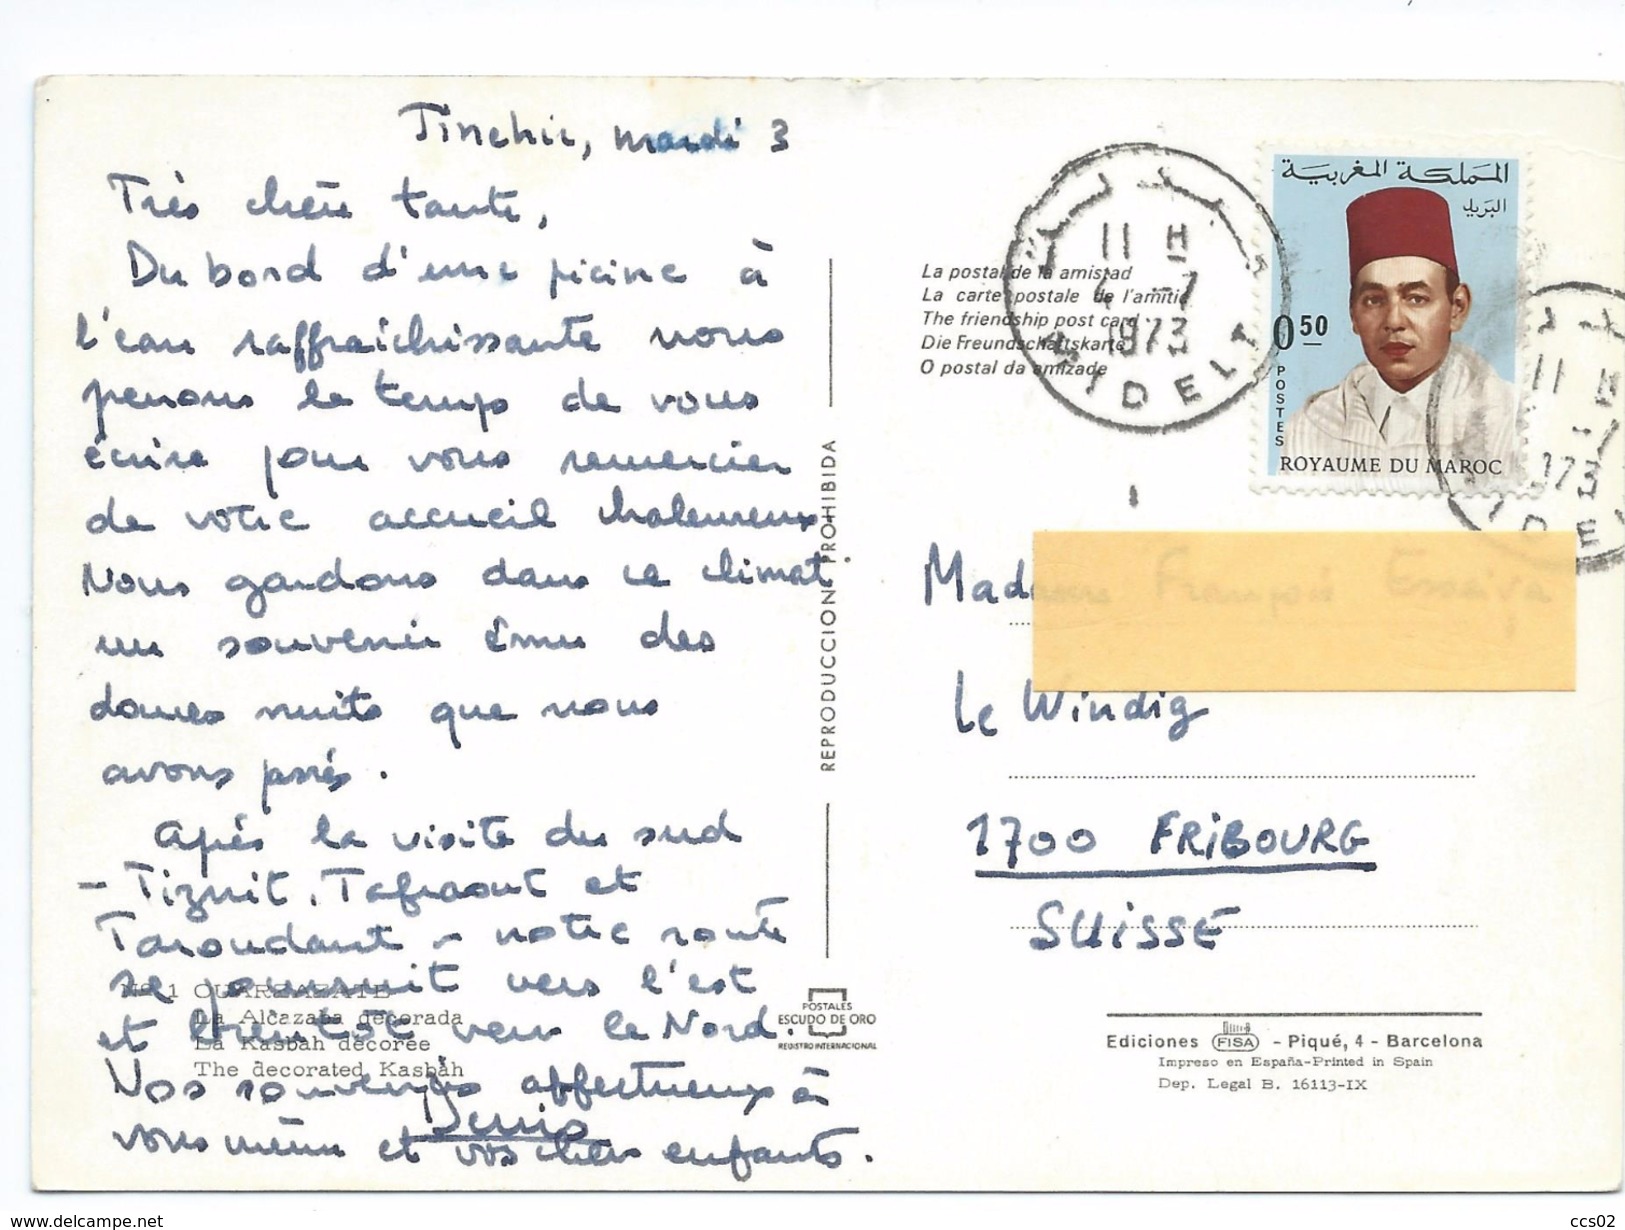 Tinehir, mardi 3
Très chère tante,
Du bord d'une picine à
l'eau raffraîchissante nous
penons le temps de vous
écrire pour vous remercier
de votre accueil chaleureux.
Nous gardons dans ce climat
un souvenir ému des
douces nuits que nous
avons passés.
Après la visite du sud
- Tiznit, Tafraout et
Taroudant - notre route
se poursuit vers l'est
et bientôt vers le Nord.
Nos souvenirs affectueux à
vous même et vos chers enfants.
Denis
Nº 1 OUARZAZATE
La Alcazaba decorada
La Kasbah décorée
The decorated Kasbah
REPRODUCCION PROHIBIDA
POSTALES
ESCUDO DE ORO
REGISTRO INTERNACIONAL
La postal de la amistad
La carte postale de l'amitié
The friendship post card
Die Freundschaftskarte
O postal da amizade
11 H
4 -7
1973
MIDELT
المملكة المغربية
البريد
0.50
POSTES
ROYAUME DU MAROC
11 H
1973
MIDELT
Madame François Esseiva
Le Windig
1700 FRIBOURG
SUISSE
Ediciones FISA - Piqué, 4 - Barcelona
Impreso en España-Printed in Spain
Dep. Legal B. 16113-IX
ccs02